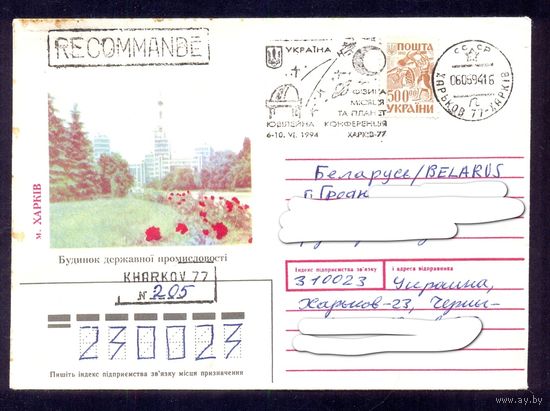 RECOMMANDÉ
УКРАЇНА
ФІЗИКА
МІСЯЦЯ
ТА ПЛАНЕТ
ЮВІЛЕЙНА КОНФЕРЕНЦІЯ
6-10. VI. 1994 ХАРКІВ-77
ПОШТА
500.00
УКРАЇНИ
СССР
06059416
ХАРЬКОВ 77-ХАРКІВ
м. ХАРКІВ
Будинок державної промисловості
KHARKOV 77
N 205
230023
Пишіть індекс підприємства зв'язку місця призначення
Беларусь/BELARUS
г.
Індекс підприємства зв'язку і адреса відправника
310023 Украина,
Харьков-23, Черны-
www.ay.by